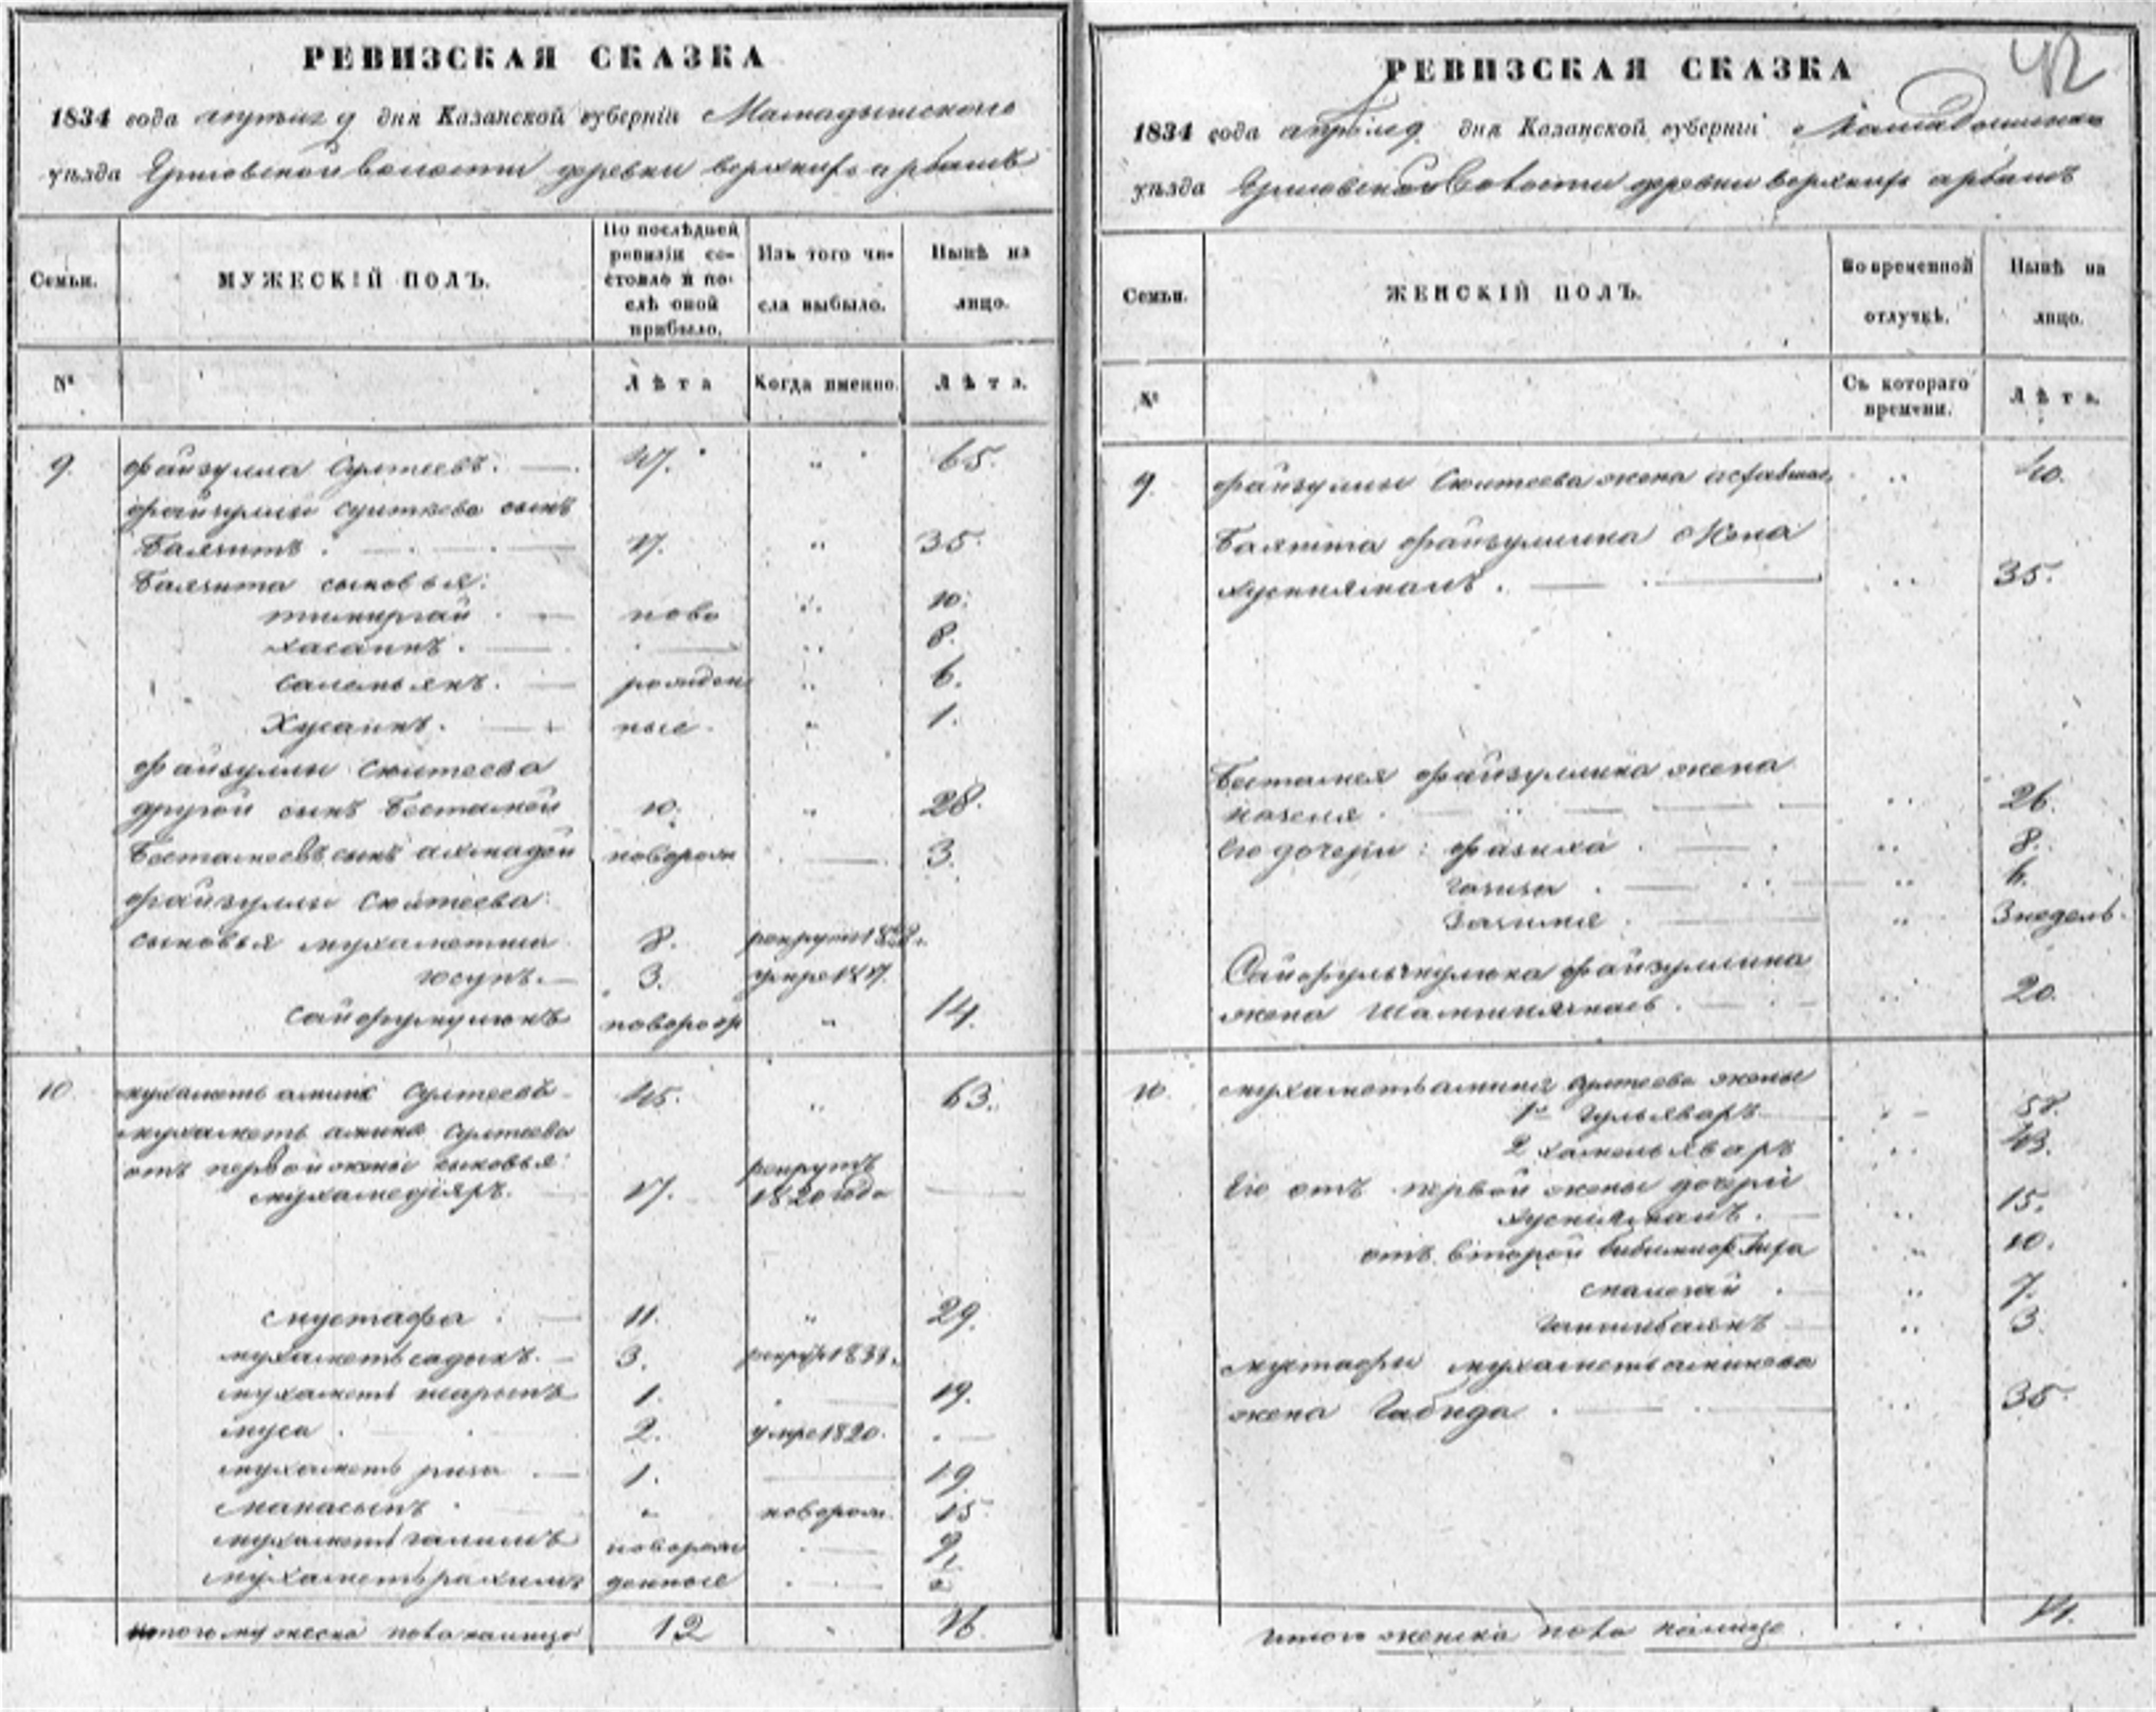 РЕВИЗСКАЯ СКАЗКА
1834 года апреля 9 дня Казанской губернiи Мамадышского
уѣзда волости деревни верхнихъ арбашъ
Семьи.
МУЖЕСКIЙ ПОЛЪ.
По послѣдней ревизiи состояло и послѣ оной прибыло.
Изъ того числа выбыло.
Нынѣ на лицо.
№
Лѣта
Когда именно.
Лѣта.
9. файзулла Сюлтеевъ. 47. " 65.
файзуллы Сюлтеева сынъ
Баязитъ. 17. " 35.
Баязита сыновья:
тимиргай ново " 10.
хасаинъ. " 8.
саленьянъ. рожден " 6.
Хусаинъ. ные. " 1.
файзуллы Сюлтеева
другой сынъ Бестамей 10. " 28.
Бестамеевъ сынъ ахмадей поворож 3.
файзуллы Сюлтеева
сыновья мухаметша 8. рекрутъ
юсупъ. 3. умре 1817.
сайфулмулюкъ новорож " 14.
10. мухаметь аминъ Сюлтеевъ 45. " 63.
мухаметь амина Сюлтеева
отъ первой жены сыновья:
мухамедiяръ. 17. рекрутъ 1820 года
мустафа 11. " 29.
мухаметь садыкъ. 3. рекру 1833.
мухаметь шарыпъ 1. 19.
муса 2. умре 1820.
мухаметь риза 1. 19
манасыпъ " новорож 15
мухаметь галимъ новорож 9.
мухаметь рахимъ денные
итого мужеска пола налицо 12 16.
42
РЕВИЗСКАЯ СКАЗКА
1834 года апреля 9. дня Казанской губернiи Мамадышского
уѣзда волости деревни верхнихъ арбашъ
Семьи.
ЖЕНСКIЙ ПОЛЪ.
Во временной отлучкѣ.
Нынѣ на лицо.
№
Съ котораго времени.
Лѣта.
9. файзуллы Сюлтеева жена " 40.
Баязита файзуллина жена
хуснiямалъ. " 35.
Бестамея файзуллина жена
назеля. " 26.
Его дочери: фазиха " 8.
газиза " 6.
Зазимя " 3 недель.
Сайфульмулюка файзуллина
жена Шамшинязнаеь. " 20.
10. мухаметь амина Сюлтеева жены
1я Гульяваръ 58.
2 хамельяваръ " 43.
Его отъ первой жены дочери
хуснiямалъ. " 15.
отъ второй " 10.
малегай " 7.
" 3
мустафы мухаметь аминова
жена Габида " 35.
итого женска пола налицо 14.